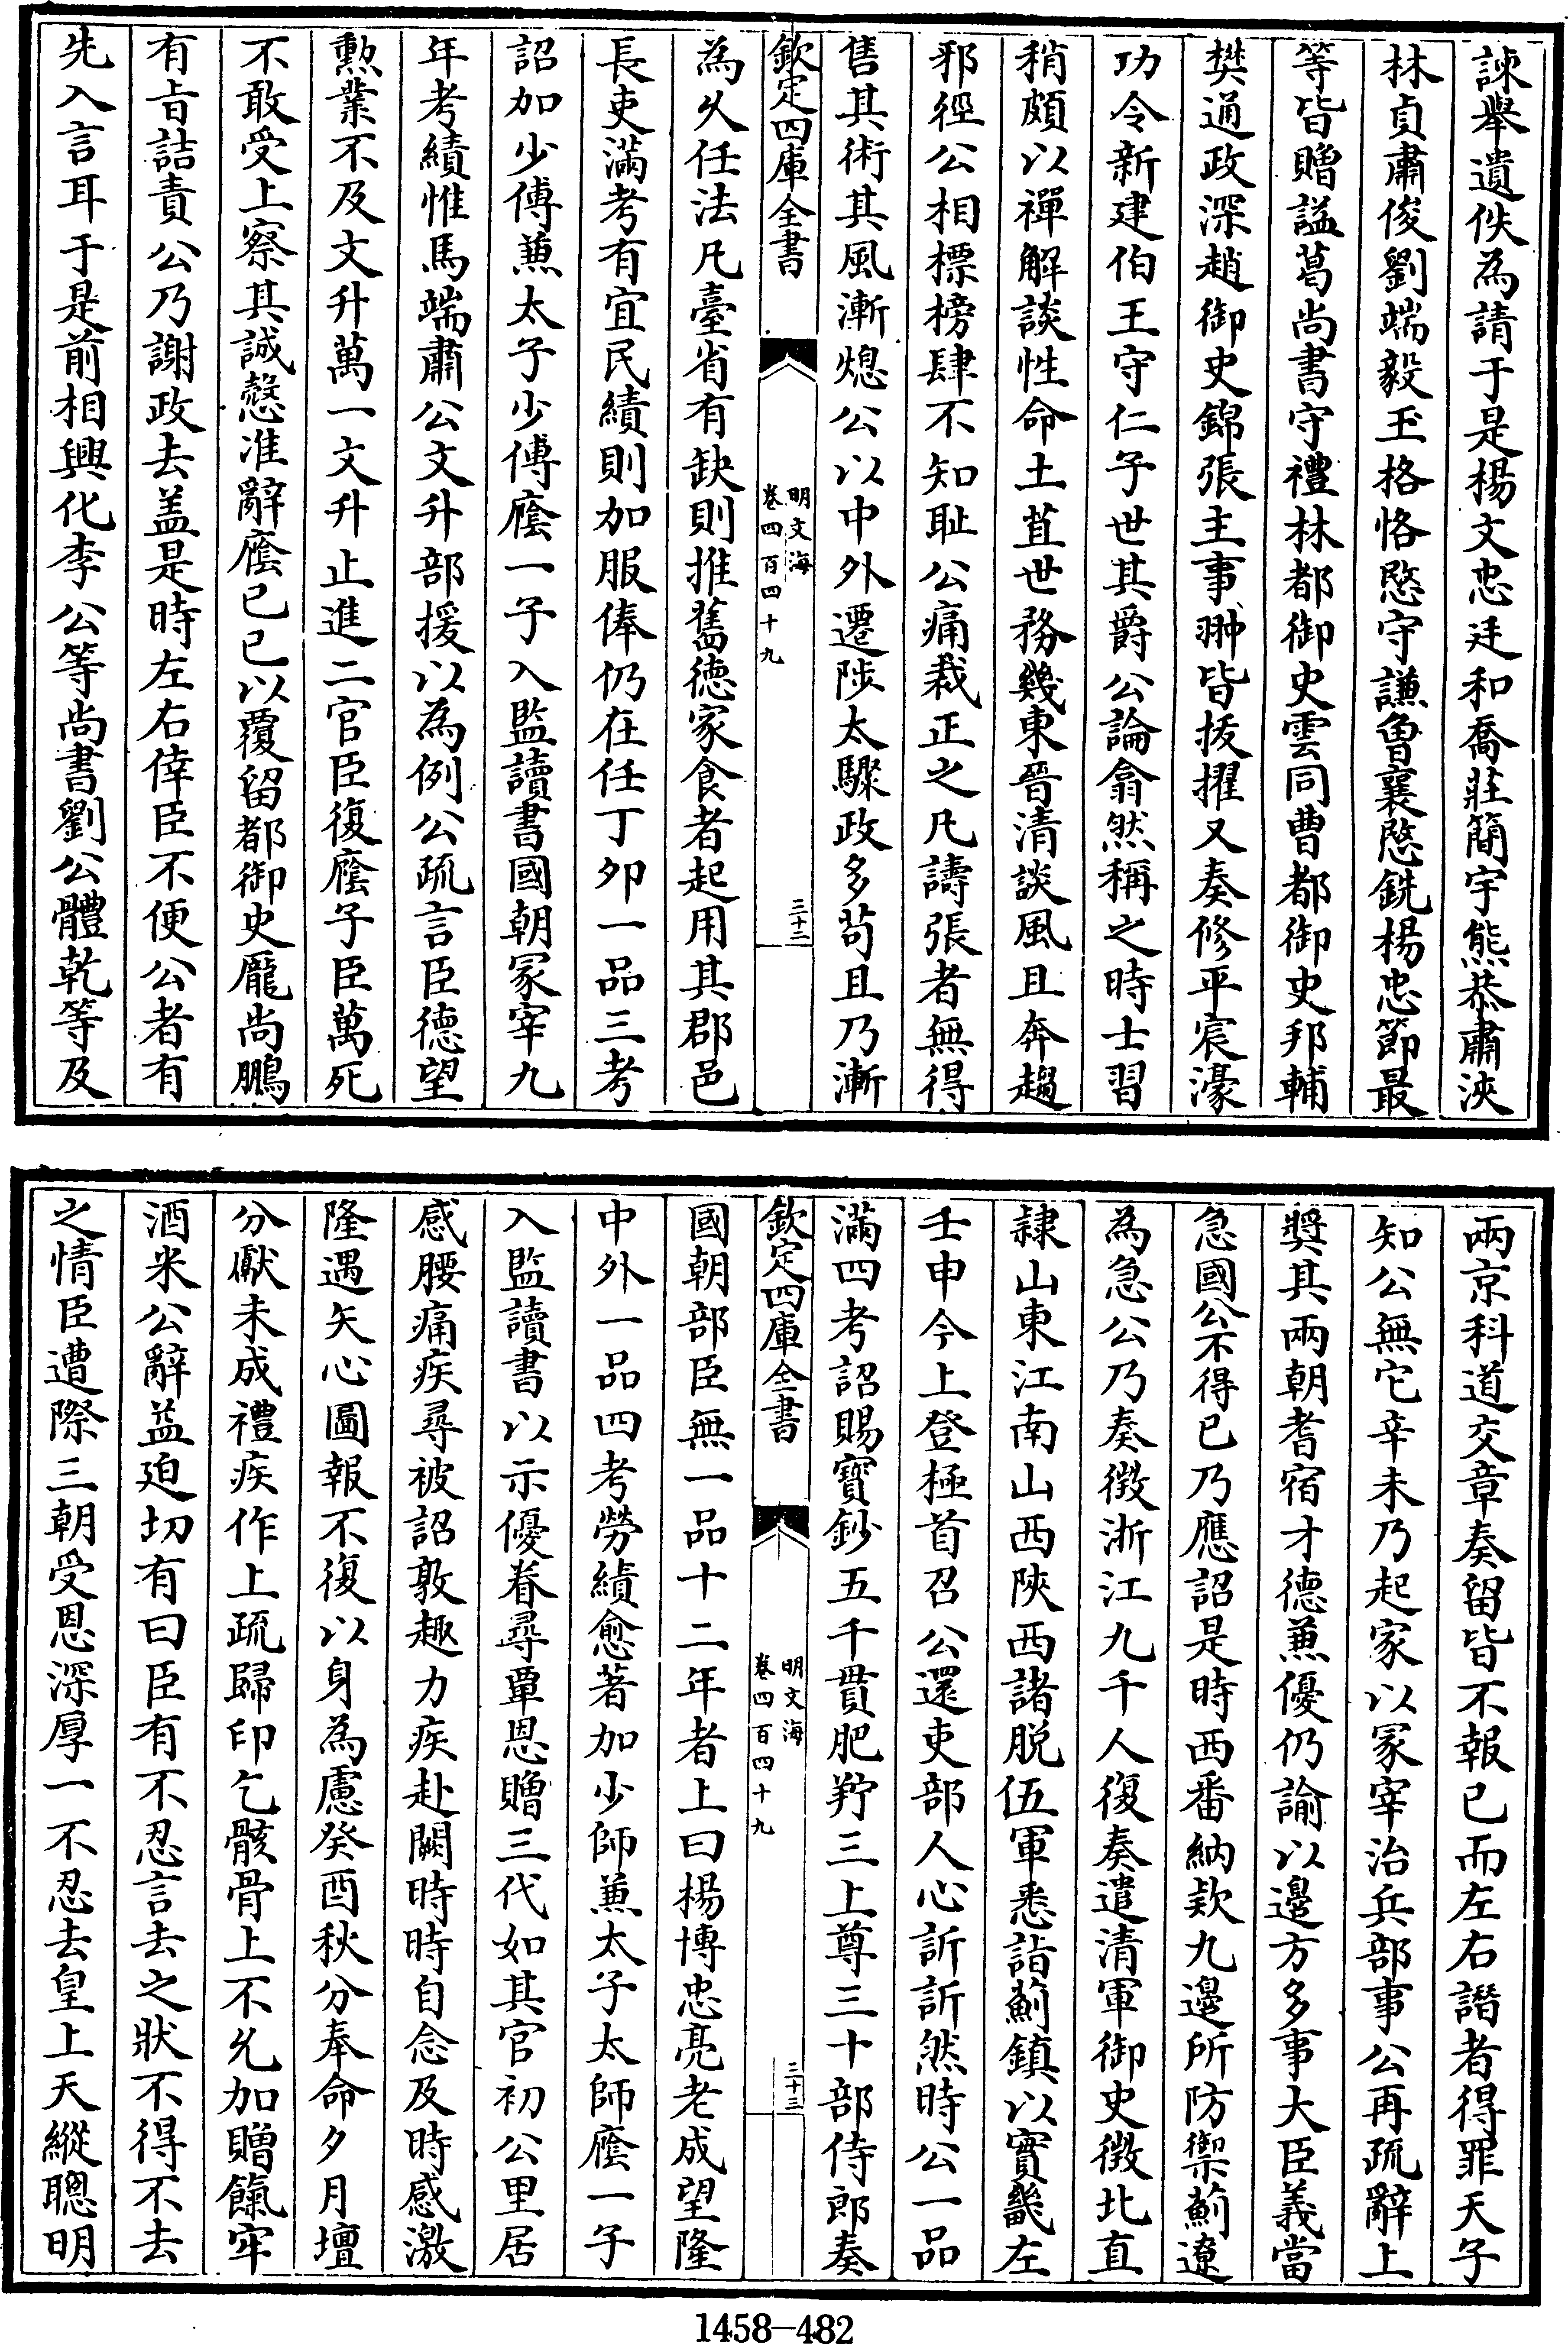 諫舉遺佚為請于是楊文忠廷和喬莊簡宇熊恭肅浹
林貞肅俊劉端毅玉格恪愍守謙魯襄愍銑楊忠節最
等皆贈諡葛尚書守禮林都御史雲同曹都御史邦輔
樊通政深趙御史錦張主事翀皆拔擢又奏修平宸濠
功令新建伯王守仁子世其爵公論翕然稱之時士習
稍頗以禪解談性命土苴世務幾東晉清談風且奔趨
邪徑公相標榜肆不知恥公痛裁正之凡譸張者無得
售其術其風漸熄公以中外遷陟太驟政多苟且乃漸
欽定四庫全書
明文海
卷四百四十九
三十二
為久任法凡臺省有缺則推舊德家食者起用其郡邑
長吏滿考有宜民績則加服俸仍在任丁卯一品三考
詔加少傅兼太子少傅廕一子入監讀書國朝冢宰九
年考績惟馬端肅公文升部援以為例公疏言臣德望
勲業不及文升萬一文升止進二官臣復廕子臣萬死
不敢受上察其誠愨准辭廕已已以覆留都御史龎尚鵬
有㫖詰責公乃謝政去盖是時左右倖臣不便公者有
先入言耳于是前相興化李公等尚書劉公體乾等及
兩京科道交章奏留皆不報已而左右譖者得罪天子
知公無它辛未乃起家以冢宰治兵部事公再疏辭上
奬其兩朝耆宿才德兼優仍諭以邊方多事大臣義當
急國公不得已乃應詔是時西番納欵九邊所防禦薊遼
為急公乃奏徴浙江九千人復奏遣清軍御史徴北直
隸山東江南山西陝西諸脱伍軍悉詣薊鎮以實畿左
壬申今上登極首召公還吏部人心訢訢然時公一品
滿四考詔賜寳鈔五千貫肥羜三上尊三十部侍郎奏
欽定四庫全書
明文海
卷四百四十九
三十三
國朝部臣無一品十二年者上曰楊博忠亮老成望隆
中外一品四考勞績愈著加少師兼太子太師廕一子
入監讀書以示優眷尋覃恩贈三代如其官初公里居
感腰痛疾尋被詔敦趣力疾赴闕時時自念及時感激
隆遇矢心圖報不復以身為慮癸酉秋分奉命夕月壇
分獻未成禮疾作上疏歸印乞骸骨上不允加贈餼牢
酒米公辭益廹切有曰臣有不忍言去之狀不得不去
之情臣遭際三朝受恩深厚一不忍去皇上天縱聰明
1458-482